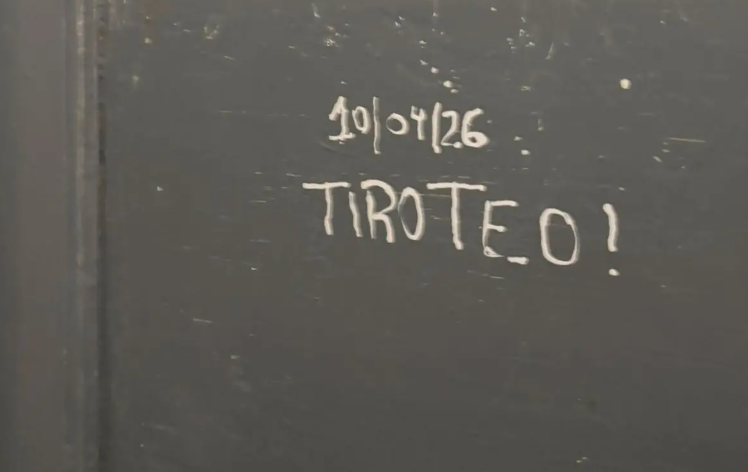 10/04/26
TIROTEO!